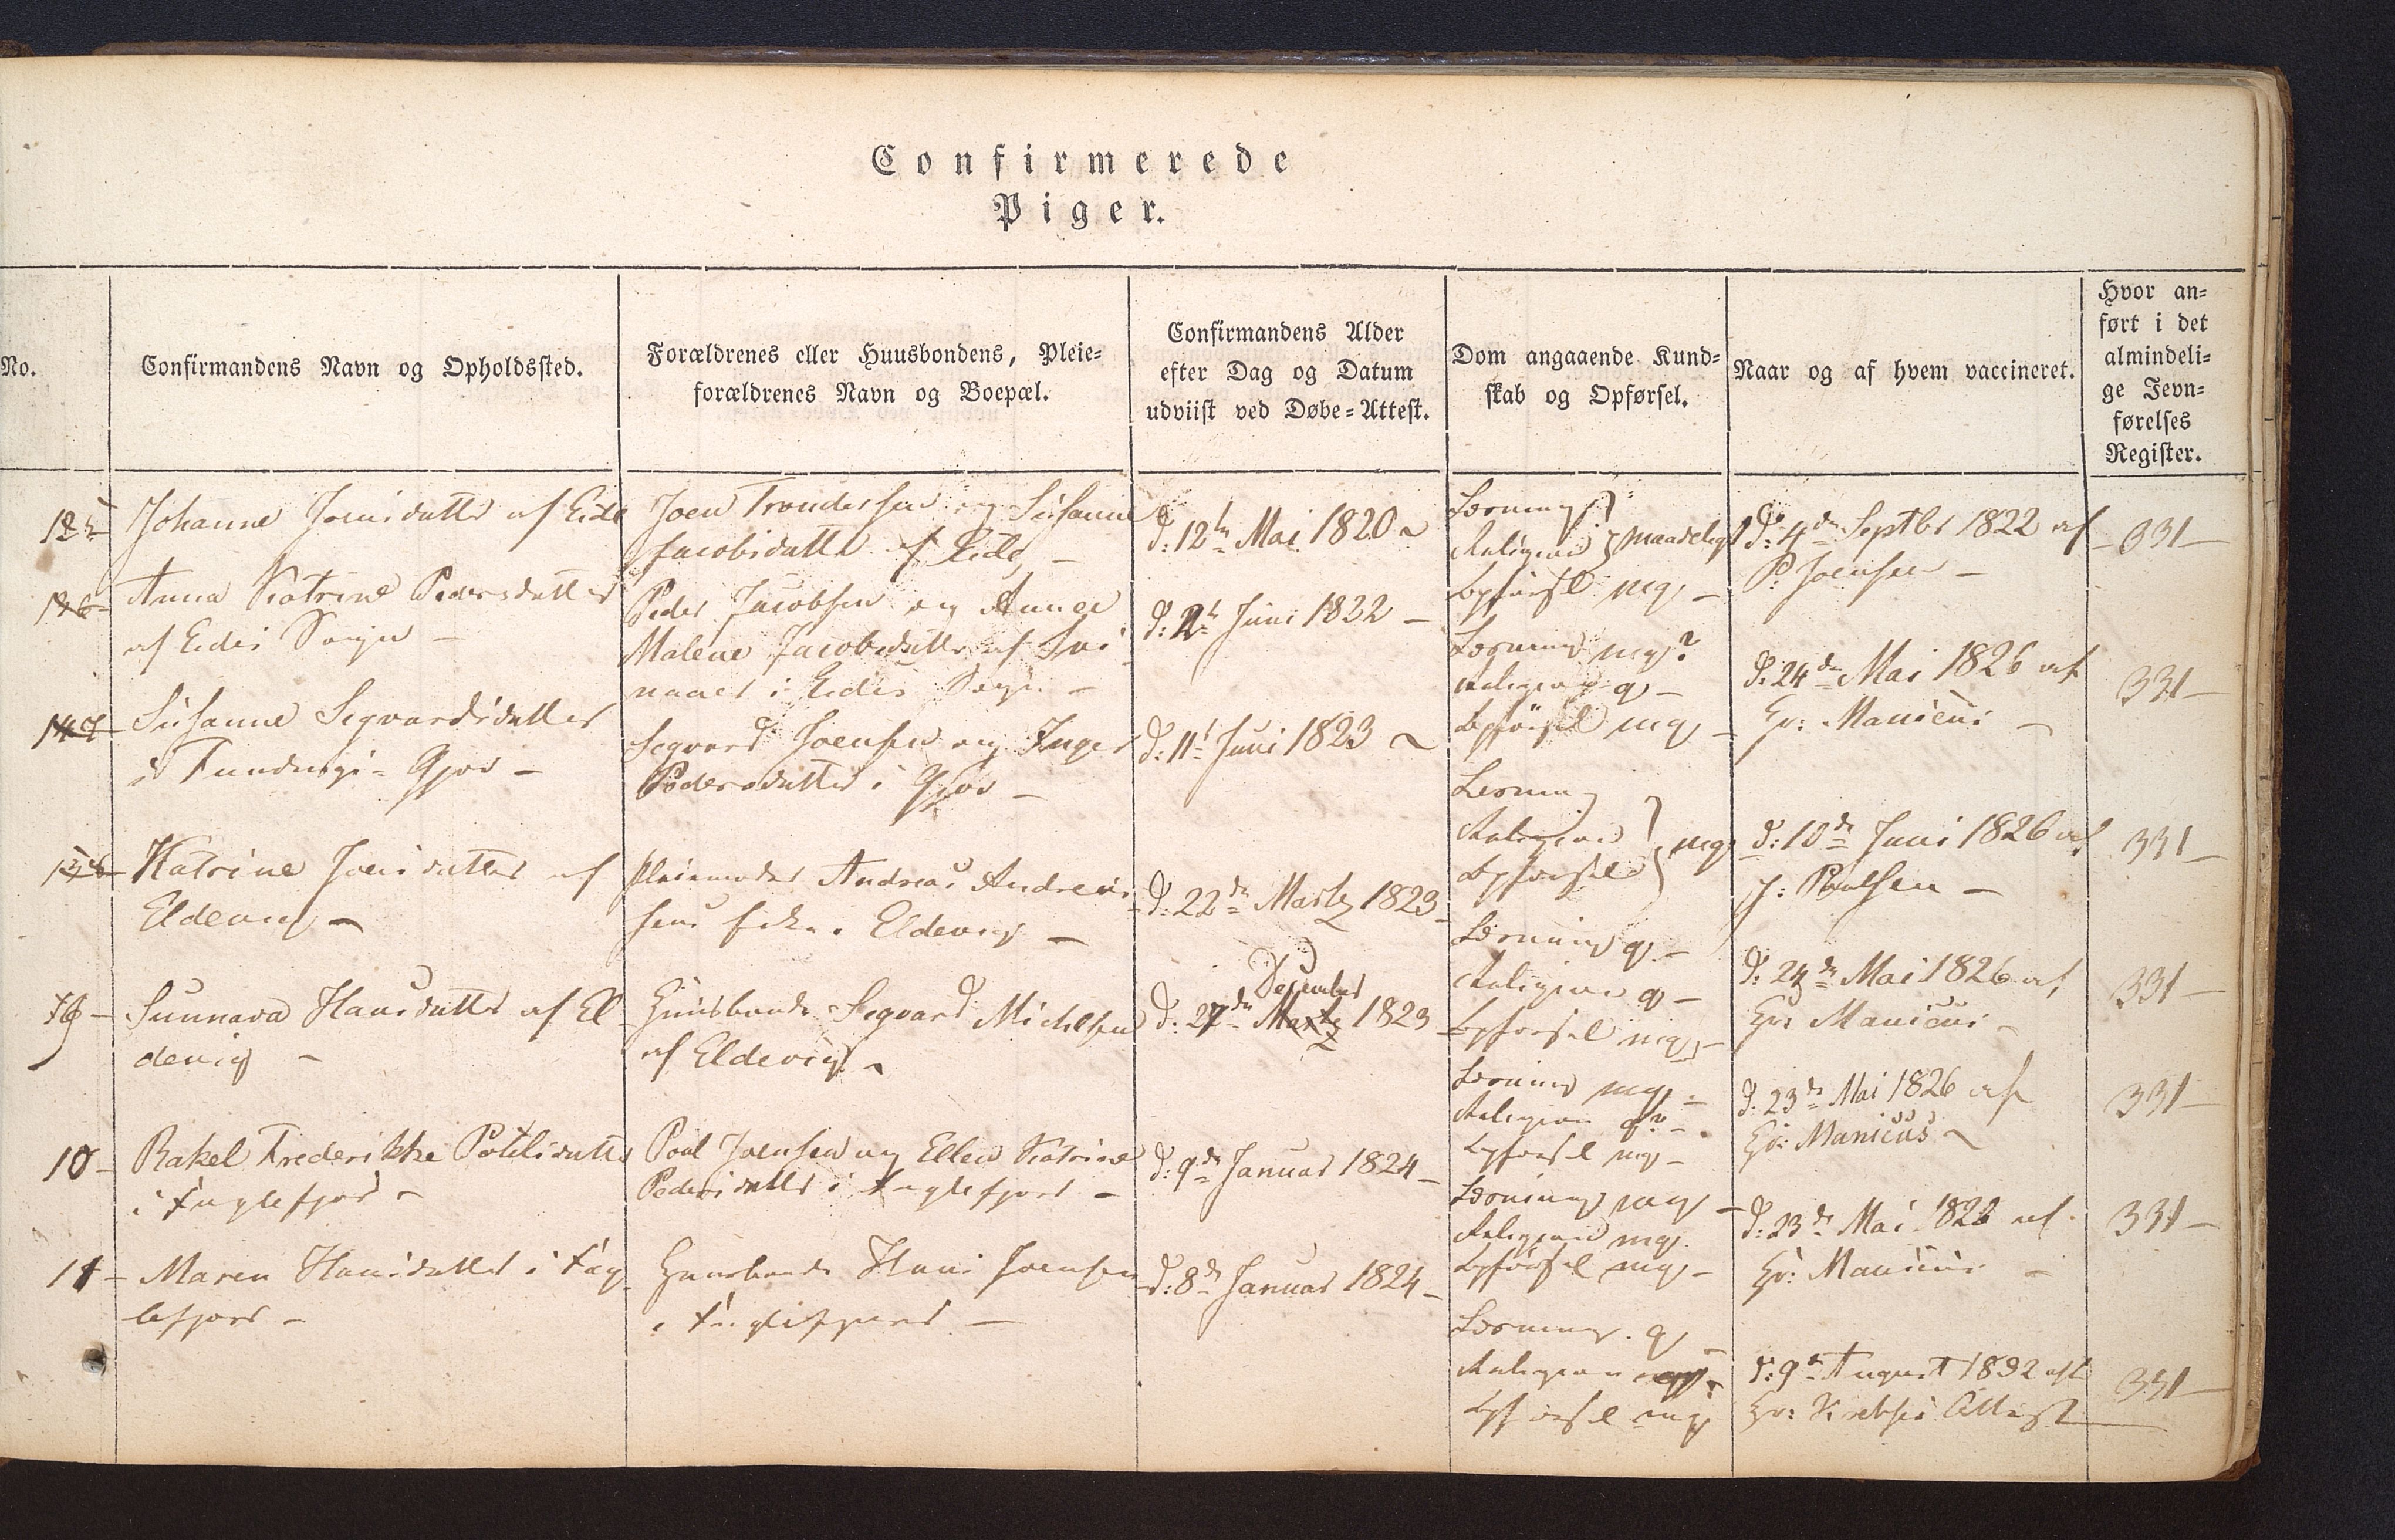 Confirmerede
Piger.
No.
Confirmandens Navn og Opholdssted.
Forældrenes eller Huusbondens, Pleie=
forældrenes Navn og Boepæl.
Confirmandens Alder
efter Dag og Datum
udviist ved Døbe=Attest.
Dom angaaende Kund=
skab og Opførsel.
Naar og af hvem vaccineret.
Hvor an=
ført i det
almindeli=
ge Jevn=
førelses
Register.
Johanne Joensdatter af Eide
Joen Trondersen og Susanne
Jacobsdatter af Eide –
d: 12te Mai 1820
Læsning
Religion maadeligt
Opførsel mg –
d: 4de Septbr 1822 af
P: Joensen –
– 331 –
Anna Katrine Pedersdatter
af Eides Sogn –
Peder Jacobsen og Anna
Malene Jacobsdatter af Svi
naaer i Eides Sogn –
Juni 1822 –
Læsning mg?
Religion g –
Opførsel mg –
d: 24de Mai 1826 af
Hr: Manicus –
331 –
Susanne Segvardsdatter
i Fundings-Gjov –
Segvard Joensen og Inger
Pedersdatter i Gjov –
d: 11te Juni 1823
Læsning
Religion mg
Opførsel
d: 10de Juni 1826 af
J: Poulsen –
331 –
Katrine Joensdatter af
Eldevig –
Pleiemoder Andreas Andreas
sens Enke i Eldevig –
d: 22de Martz 1823 –
Læsning g –
Religion g –
Opførsel mg –
d: 24de Mai 1826 af
Hr: Manicus –
331 –
Sunnava Hansdatter af El
devig –
Huusbonde Segvard Michelsen
af Eldevig –
December
d: 27de Martz 1823
Læsning mg –
Religion g? –
Opførsel mg –
d: 23de Mai 1826 af
Hr: Manicus
331 –
10 –
Rakel Frederikke Potelsdatter
i Fuglefjord –
Poul Joensen og Ellen Katrine
Pedersdatter i Fuglefjord –
d: 9de Januar 1824 –
Læsning mg –
Religion mg
Opførsel mg –
d: 23de Mai 1826 af
Hr: Manicus –
331 –
11 –
Maren Hansdatter i Fug
lefjord –
Huusbonde Hans Joensen
i Fuglefjord –
d: 8de Januar 1824 –
Læsning g
Religion
Opførsel mg
d: 9de August 1832 af
Hr: Attest
331 –